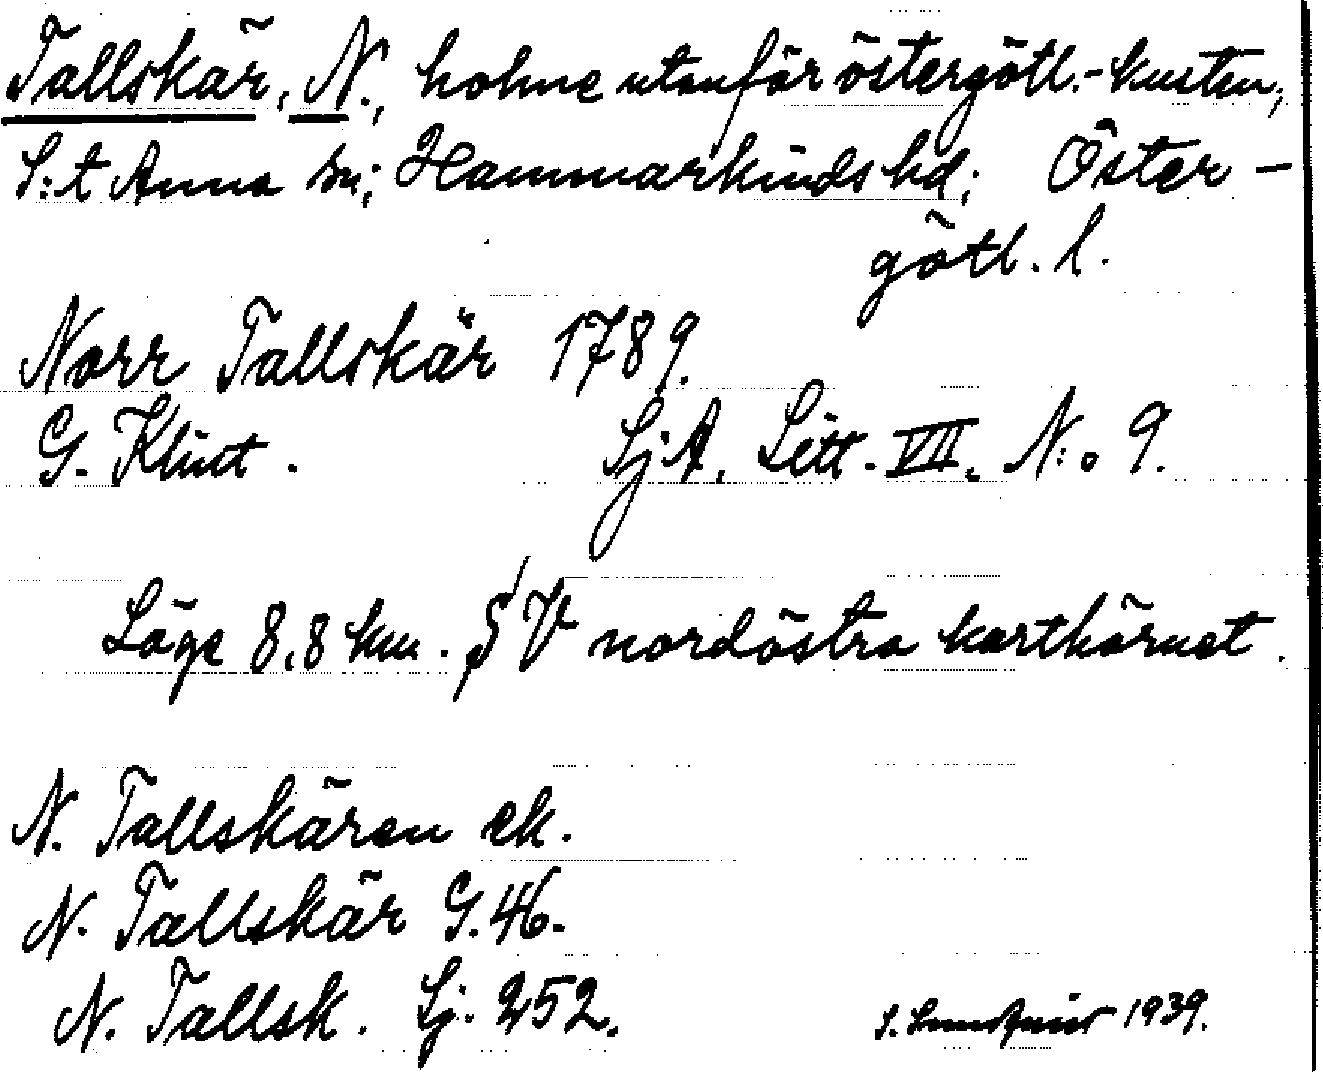 Tallskär, N., holme utanför östergötl.-kusten,
S:t Anna sn; Hammarkinds hd; Öster-
götl. l.
Norr Tallskär 1789.
G. Klint. SjA, Litt. VII. N:o 9.
Läge 8,8 km. S V nordöstra karthörnet.
N. Tallskären ek.
N. Tallskär G. 46.
N. Tallsk. Sj. 252.
1939.